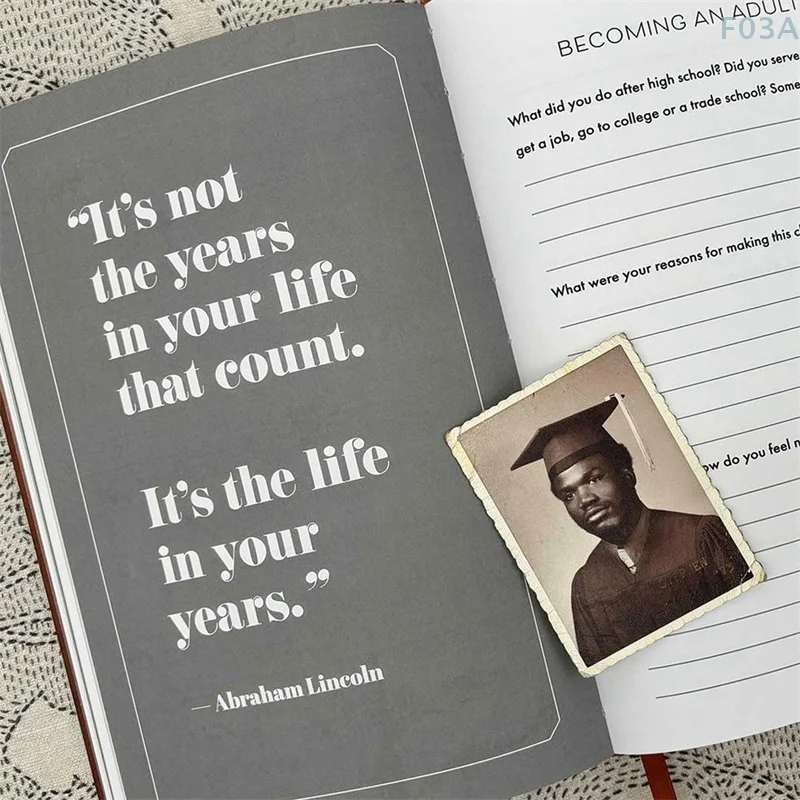 “It’s not
the years
in your life
that count.
It’s the life
in your
years.”
— Abraham Lincoln
F03A
BECOMING AN ADULT
What did you do after high school? Did you serve
get a job, go to college or a trade school? Some
What were your reasons for making this
do you feel